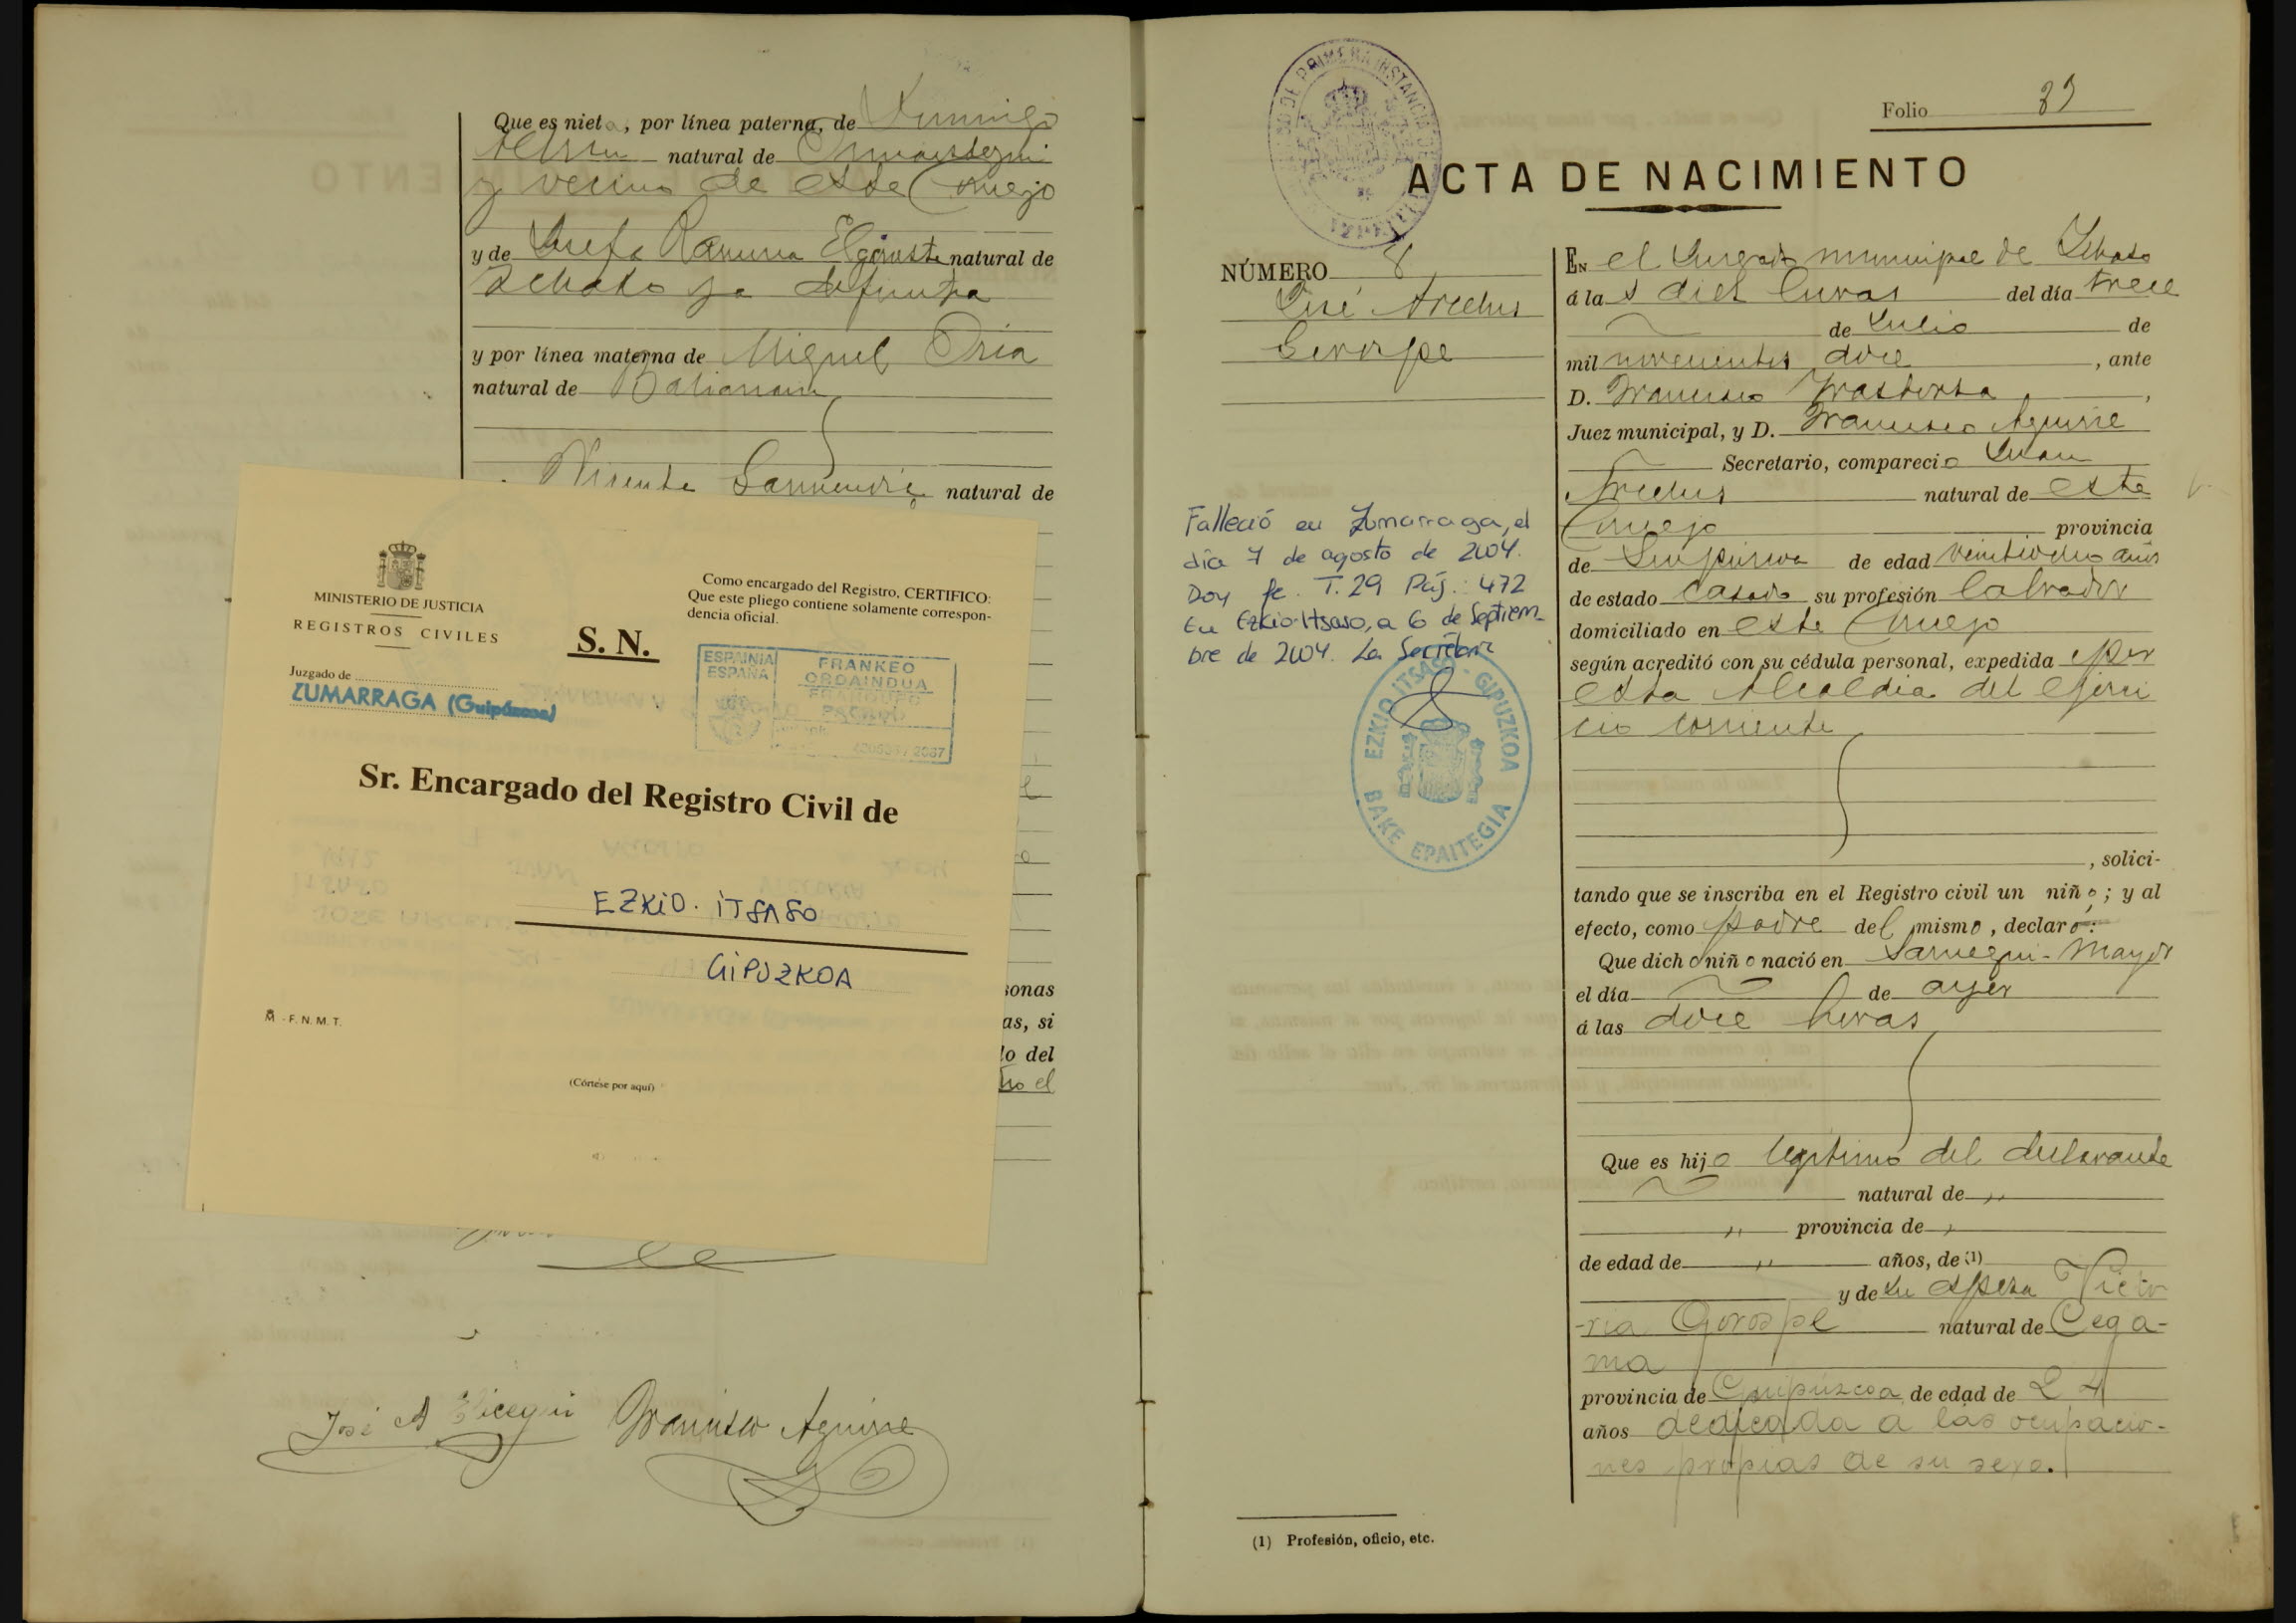 Que es nieta, por línea paterna, de Domingo
natural de Ormaiztegui
y vecino de este Consejo
y de Josefa Ramona natural de
Ichaso ya defunta
y por línea materna de Miguel Oria
natural de
Vicenta natural de
MINISTERIO DE JUSTICIA
REGISTROS CIVILES
S. N.
Como encargado del Registro, CERTIFICO:
Que este pliego contiene solamente correspon-
dencia oficial.
Juzgado de
ZUMARRAGA (Guipúzcoa)
ESPAINIA
ESPAÑA
FRANKEO
ORDAINDUA
FRANQUEO
PAGADO
Sr. Encargado del Registro Civil de
EZKIO-ITSASO
GIPUZKOA
F. N. M. T.
(Córtese por aquí)
sonas
as, si
lo del
el
José A Elicegui Francisco Aguirre
Folio
ACTA DE NACIMIENTO
NÚMERO 8
José Arcelus
Gorospe
Falleció en Zumarraga, el
día 7 de agosto de 2004.
Doy fe. T. 29 Páj.: 472
En Ezkio-Itsaso, a 6 de Septiem-
bre de 2004. La Secretaria
EZKIO ITSASO - GIPUZKOA
BAKE EPAITEGIA
EN el Juzgado municipal de Ichaso
á las diez horas del día trece
de Julio de
mil novecientos doce, ante
D. Francisco
Juez municipal, y D. Francisco Aguirre
Secretario, compareció Juan
Arcelus natural de este
Consejo provincia
de Guipúzcoa de edad veintiocho años
de estado casado su profesión labrador
domiciliado en este Consejo
según acreditó con su cédula personal, expedida por
esta Alcaldia del ejerci
cio corriente
, solici-
tando que se inscriba en el Registro civil un niño; y al
efecto, como padre del mismo, declaró:
Que dicho niño nació en Sarnegui-Mayor
el día de ayer
á las doce horas
Que es hijo legítimo del declarante
natural de „
„ provincia de „
de edad de „ años, de (1)
y de su esposa Victo-
-ria Gorospe natural de Cega-
ma
provincia de Guipúzcoa de edad de 24
años dedicada a las ocupacio-
nes propias de su sexo.
(1) Profesión, oficio, etc.